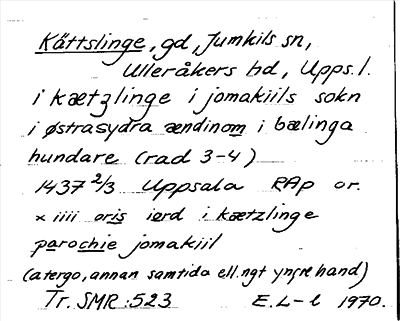 Kättslinge, gd, Jumkils sn,
Ulleråkers hd, Upps. l.
i kætzlinge i jomakiils sokn
i østrasydra ændinom i bælinga
hundare (rad 3-4)
1437 2/3 Uppsala RAp or.
x iiii oris iord i kætzlinge
parochie jomakiil
(atergo, annan samtida ell. ngt yngre hand)
Tr. SMR :523 E. L-l 1970.